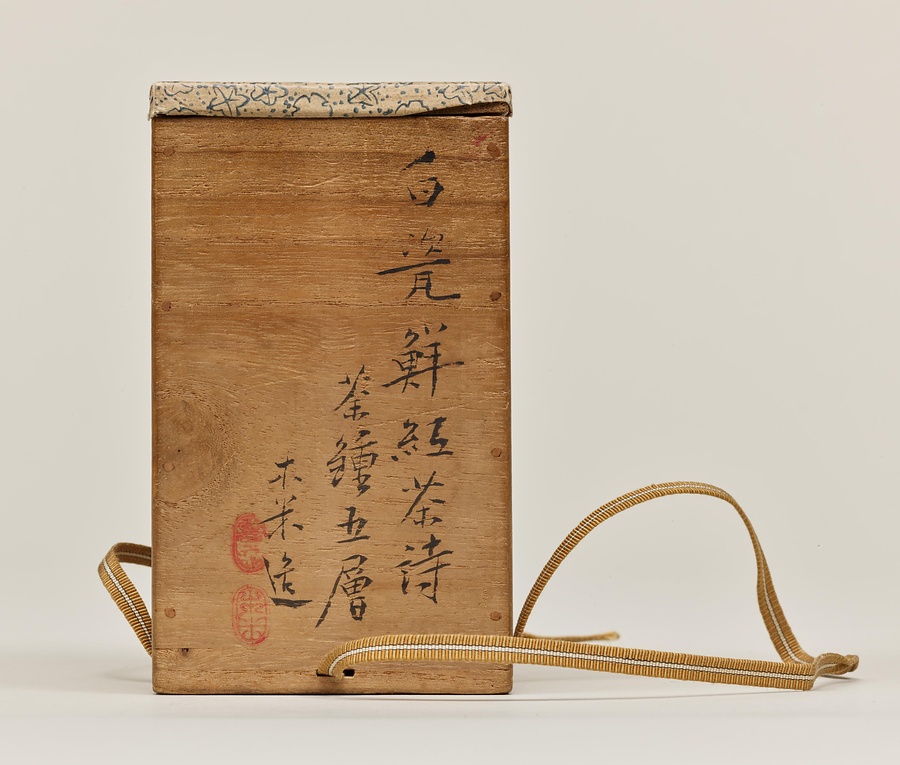 白瓷鮮紅茶詩
茶鍾五層
木米造